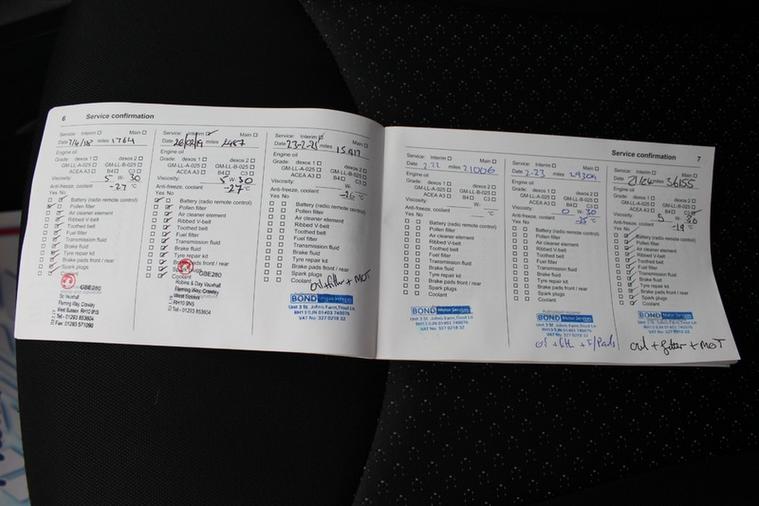 6 Service confirmation
Service: Interim Main
Date 7/4/18 miles 1764
Engine oil
Grade: dexos 1 dexos 2
GM-LL-A-025 GM-LL-B-025
ACEA A3 B4 C3
Viscosity: 5 W- 30
Anti-freeze, coolant -27 °C
Yes No
Battery (radio remote control)
Pollen filter
Air cleaner element
Ribbed V-belt
Toothed belt
Fuel filter
Transmission fluid
Brake fluid
Tyre repair kit
Brake pads front / rear
Spark plugs
Coolant
GBE280
Vauxhall
Fleming Way Crawley
West Sussex RH10 9NS
Tel - 01293 853804
Fax: 01293 571090
Service: Interim Main
Date miles
Engine oil
Grade: dexos 1 dexos 2
GM-LL-A-025 GM-LL-B-025
ACEA A3 B4 C3
Viscosity: 5 W- 30
Anti-freeze, coolant -27 °C
Yes No
Battery (radio remote control)
Pollen filter
Air cleaner element
Ribbed V-belt
Toothed belt
Fuel filter
Transmission fluid
Brake fluid
Tyre repair kit
Brake pads front / rear
Spark plugs
Coolant
GBE280
Robins & Day Vauxhall
Fleming Way Crawley
West Sussex
RH10 9NS
Tel - 01293 853804
Service: Interim Main
Date 23-2-21 miles 15.917
Engine oil
Grade: dexos 1 dexos 2
GM-LL-A-025 GM-LL-B-025
ACEA A3 B4 C3
Viscosity: W-
Anti-freeze, coolant °C
Yes No
Battery (radio remote control)
Pollen filter
Air cleaner element
Ribbed V-belt
Toothed belt
Fuel filter
Transmission fluid
Brake fluid
Tyre repair kit
Brake pads front / rear
Spark plugs
Coolant
oil + filter + MOT
BOND Motor Services
VAT No: 327 0218 32
Service confirmation 7
Service: Interim Main
Date 2.22 miles 21006
Engine oil
Grade: dexos 1 dexos 2
GM-LL-A-025 GM-LL-B-025
ACEA A3 B4 C3
Viscosity: W-
Anti-freeze, coolant °C
Yes No
Battery (radio remote control)
Pollen filter
Air cleaner element
Ribbed V-belt
Toothed belt
Fuel filter
Transmission fluid
Brake fluid
Tyre repair kit
Brake pads front / rear
Spark plugs
Coolant
BOND Motor Services
VAT No: 327 0218 32
Service: Interim Main
Date 2.23 miles 29304
Engine oil
Grade: dexos 1 dexos 2
GM-LL-A-025 GM-LL-B-025
ACEA A3 B4 C3
Viscosity: 0 W- 30
Anti-freeze, coolant °C
Yes No
Battery (radio remote control)
Pollen filter
Air cleaner element
Ribbed V-belt
Toothed belt
Fuel filter
Transmission fluid
Brake fluid
Tyre repair kit
Brake pads front / rear
Spark plugs
Coolant
BOND Motor Services
VAT No: 327 0218 32
Service: Interim Main
Date miles 36155
Engine oil
Grade: dexos 1 dexos 2
GM-LL-A-025 GM-LL-B-025
ACEA A3 B4 C3
Viscosity: 5 W 30
Anti-freeze, coolant °C
Yes No
Battery (radio remote control)
Pollen filter
Air cleaner element
Ribbed V-belt
Toothed belt
Fuel filter
Transmission fluid
Brake fluid
Tyre repair kit
Brake pads front / rear
Spark plugs
Coolant
BOND Motor Services
VAT No: 327 0218 32
Oil + filter + MOT